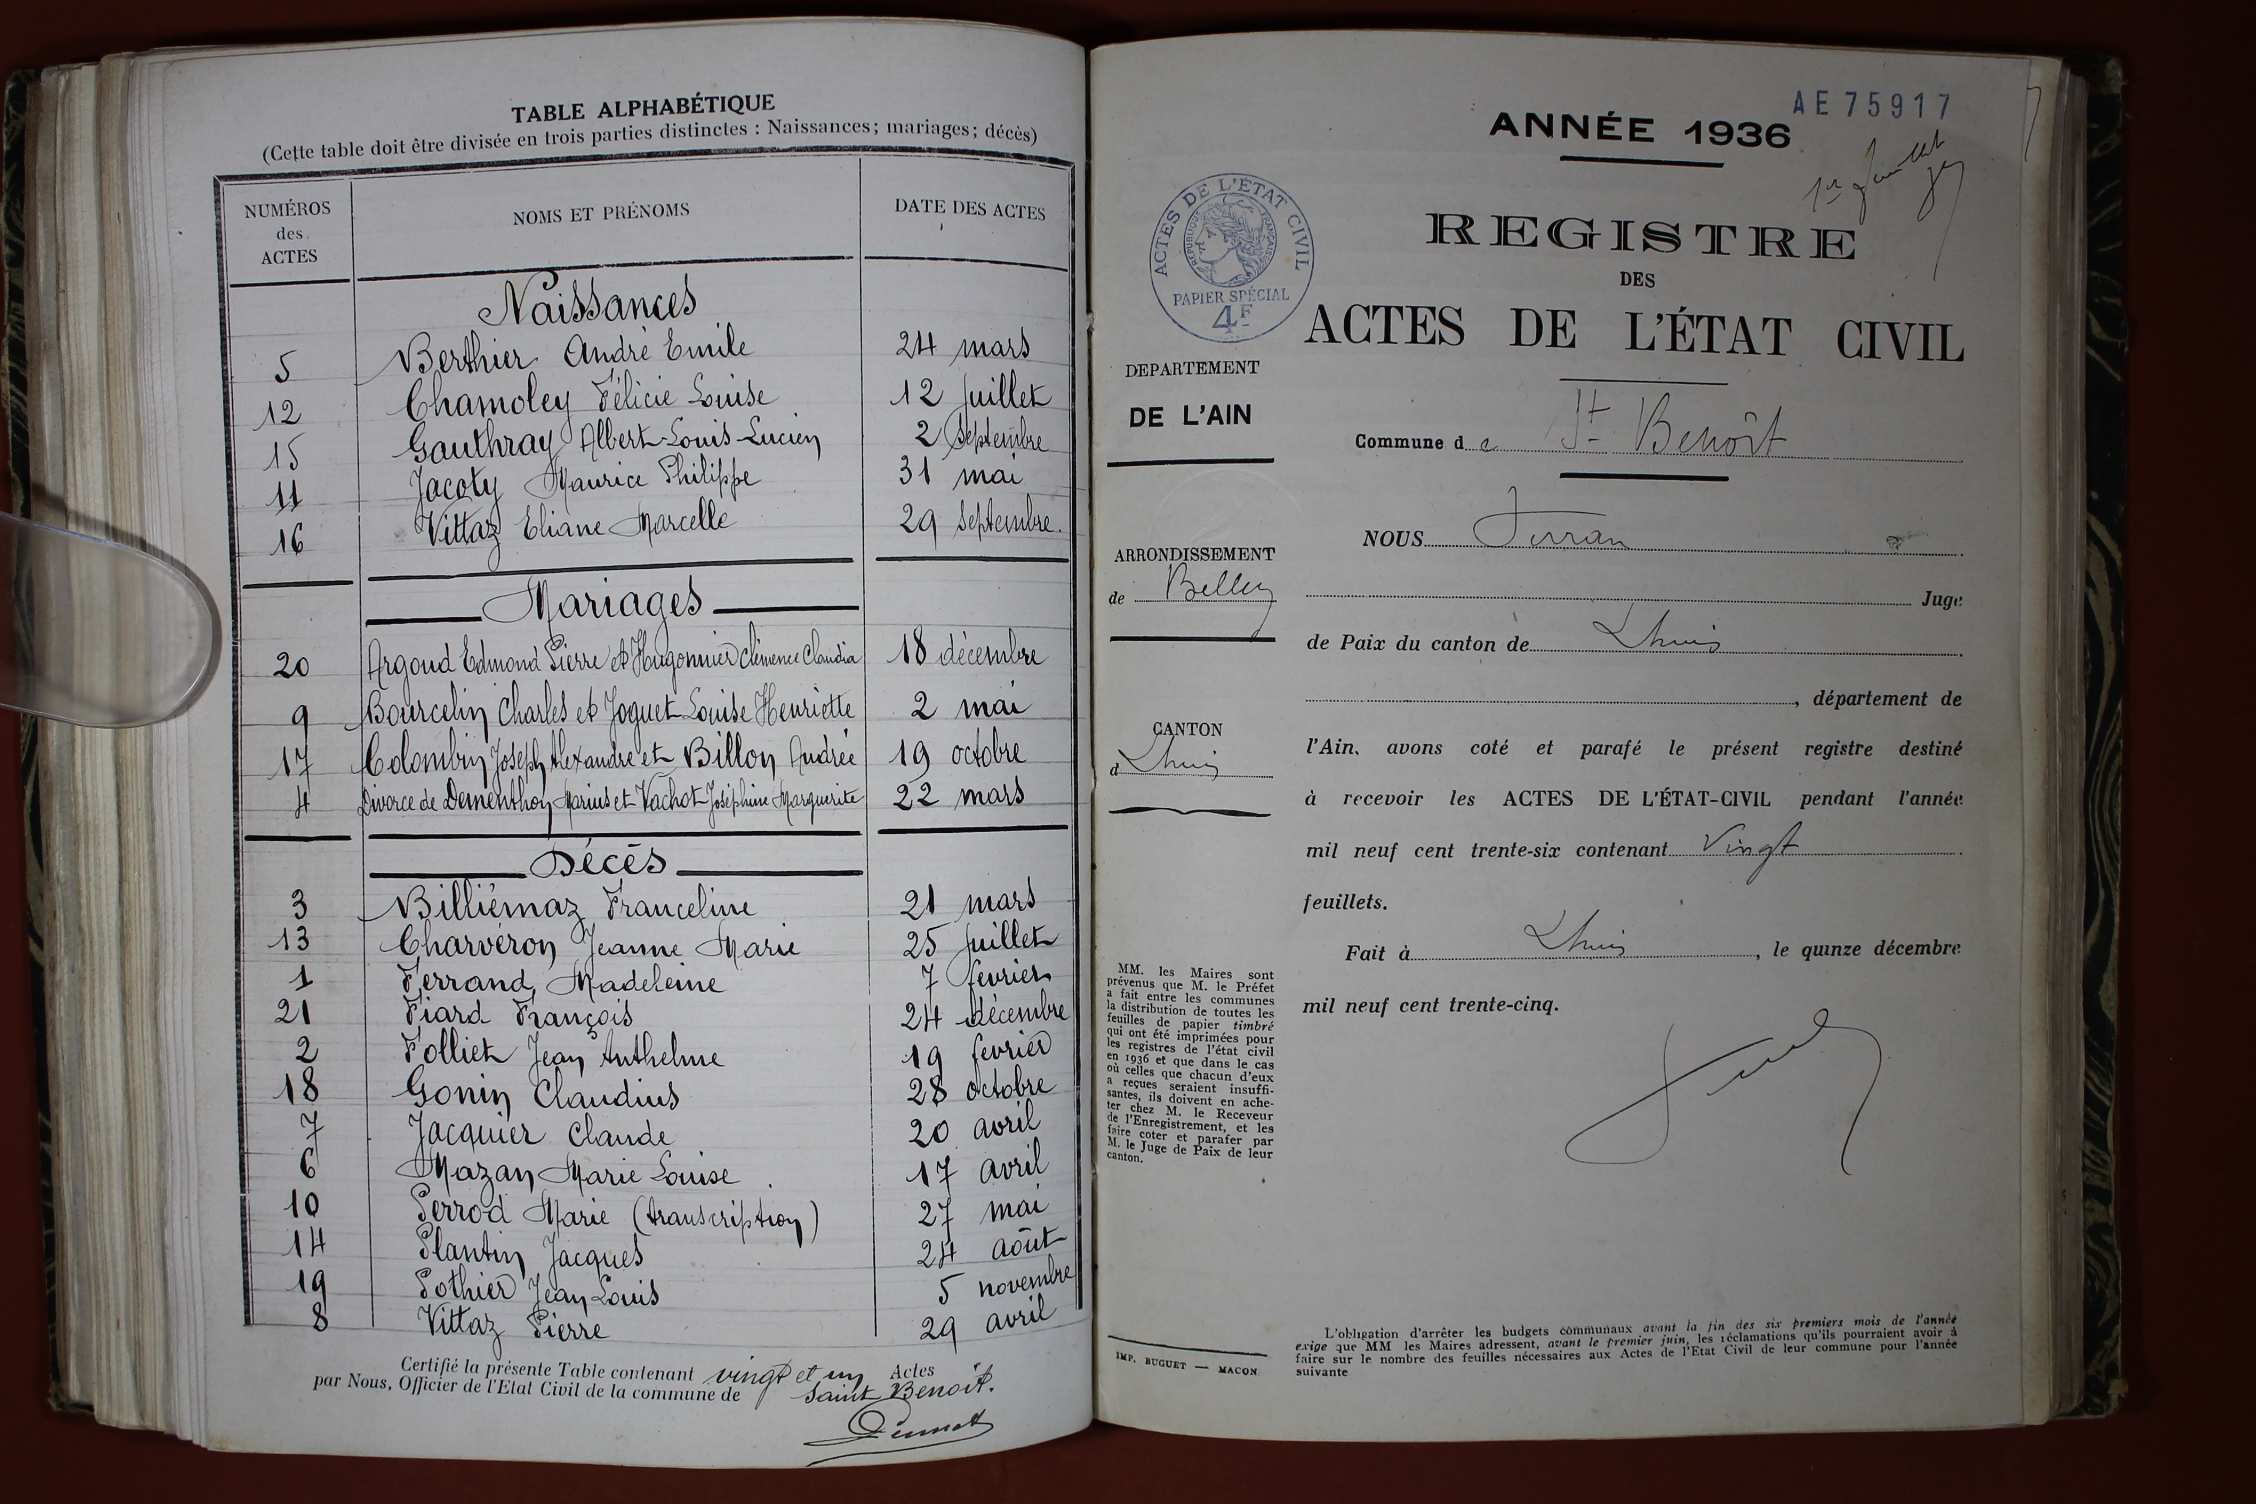 TABLE ALPHABÉTIQUE
(Cette table doit être divisée en trois parties distinctes : Naissances; mariages; décès)
NUMÉROS des ACTES NOMS ET PRÉNOMS DATE DES ACTES
Naissances
5 Berthier André Emile 24 mars
12 Chamoley Félicie Louise 12 Juillet
15 Gauthray Albert-Louis-Lucien 2 Septembre
11 Jacoty Maurice Philippe 31 mai
16 Vittaz Eliane Marcelle 29 Septembre.
Mariages
20 Argoud Edmond Pierre et Hugonnier Clémence Claudia 18 décembre
9 Bourcelin Charles et Joguet Louise Henriette 2 mai
17 Colombin Joseph Alexandre et Billon Andrée 19 octobre
4 Divorce de Dementhon Marius et Vachot Joséphine Marguerite 22 mars
Décès
3 Billiémaz Franceline 21 mars
13 Charvéron Jeanne Marie 25 Juillet
1 Ferrand Madeleine 7 fevrier
21 Fiard François 24 décembre
2 Folliet Jean Anthelme 19 fevrier
18 Gonin Claudius 28 octobre
7 Jacquier Claude 20 avril
6 Mazan Marie Louise 17 avril
10 Perrod Marie (transcription) 27 mai
14 Plantin Jacques 24 août
19 Pothier Jean Louis 5 novembre
8 Vittaz Pierre 29 avril
Certifié la présente Table contenant vingt et un Actes
par Nous, Officier de l'Etat Civil de la commune de Saint Benoit.
AE75917
ANNÉE 1936
1er
REGISTRE
DES
ACTES DE L'ÉTAT CIVIL
ACTES DE L'ÉTAT CIVIL
RÉPUBLIQUE FRANÇAISE
PAPIER SPÉCIAL
4F
DEPARTEMENT
DE L'AIN
Commune de St Benoît
NOUS
ARRONDISSEMENT
de Belley
Juge
de Paix du canton de Lhuis
, département de
CANTON
d Lhuis
l'Ain, avons coté et parafé le présent registre destiné
à recevoir les ACTES DE L'ÉTAT-CIVIL pendant l'année
mil neuf cent trente-six contenant Vingt
feuillets.
Fait à Lhuis, le quinze décembre
mil neuf cent trente-cinq.
MM. les Maires sont
prévenus que M. le Préfet
a fait entre les communes
la distribution de toutes les
feuilles de papier timbré
qui ont été imprimées pour
les registres de l'état civil
en 1936 et que dans le cas
où celles que chacun d'eux
a reçues seraient insuffi-
santes, ils doivent en ache-
ter chez M. le Receveur
de l'Enregistrement, et les
faire coter et parafer par
M. le Juge de Paix de leur
canton.
IMP. BUGUET — MACON
L'obligation d'arrêter les budgets communaux avant la fin des six premiers mois de l'année
exige que MM les Maires adressent, avant le premier juin, les réclamations qu'ils pourraient avoir à
faire sur le nombre des feuilles nécessaires aux Actes de l'Etat Civil de leur commune pour l'année
suivante